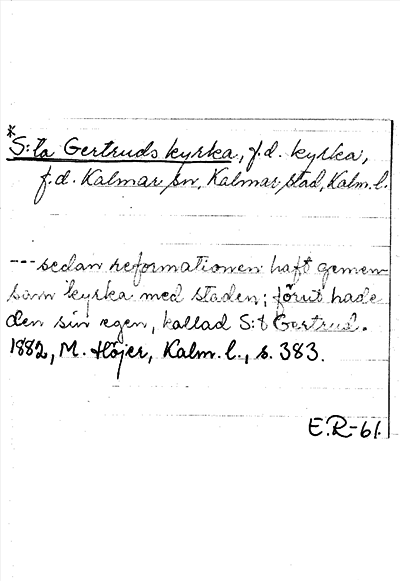 *
S:ta Gertruds kyrka, f.d. kyrka,
f.d. Kalmar sn, Kalmar stad, Kalm. l.
--- sedan reformationen haft gemen-
sam kyrka med staden; förut hade
den sin egen, kallad S:t Gertrud.
1882, M. Höjer, Kalm. l., s. 383.
E.R-61.